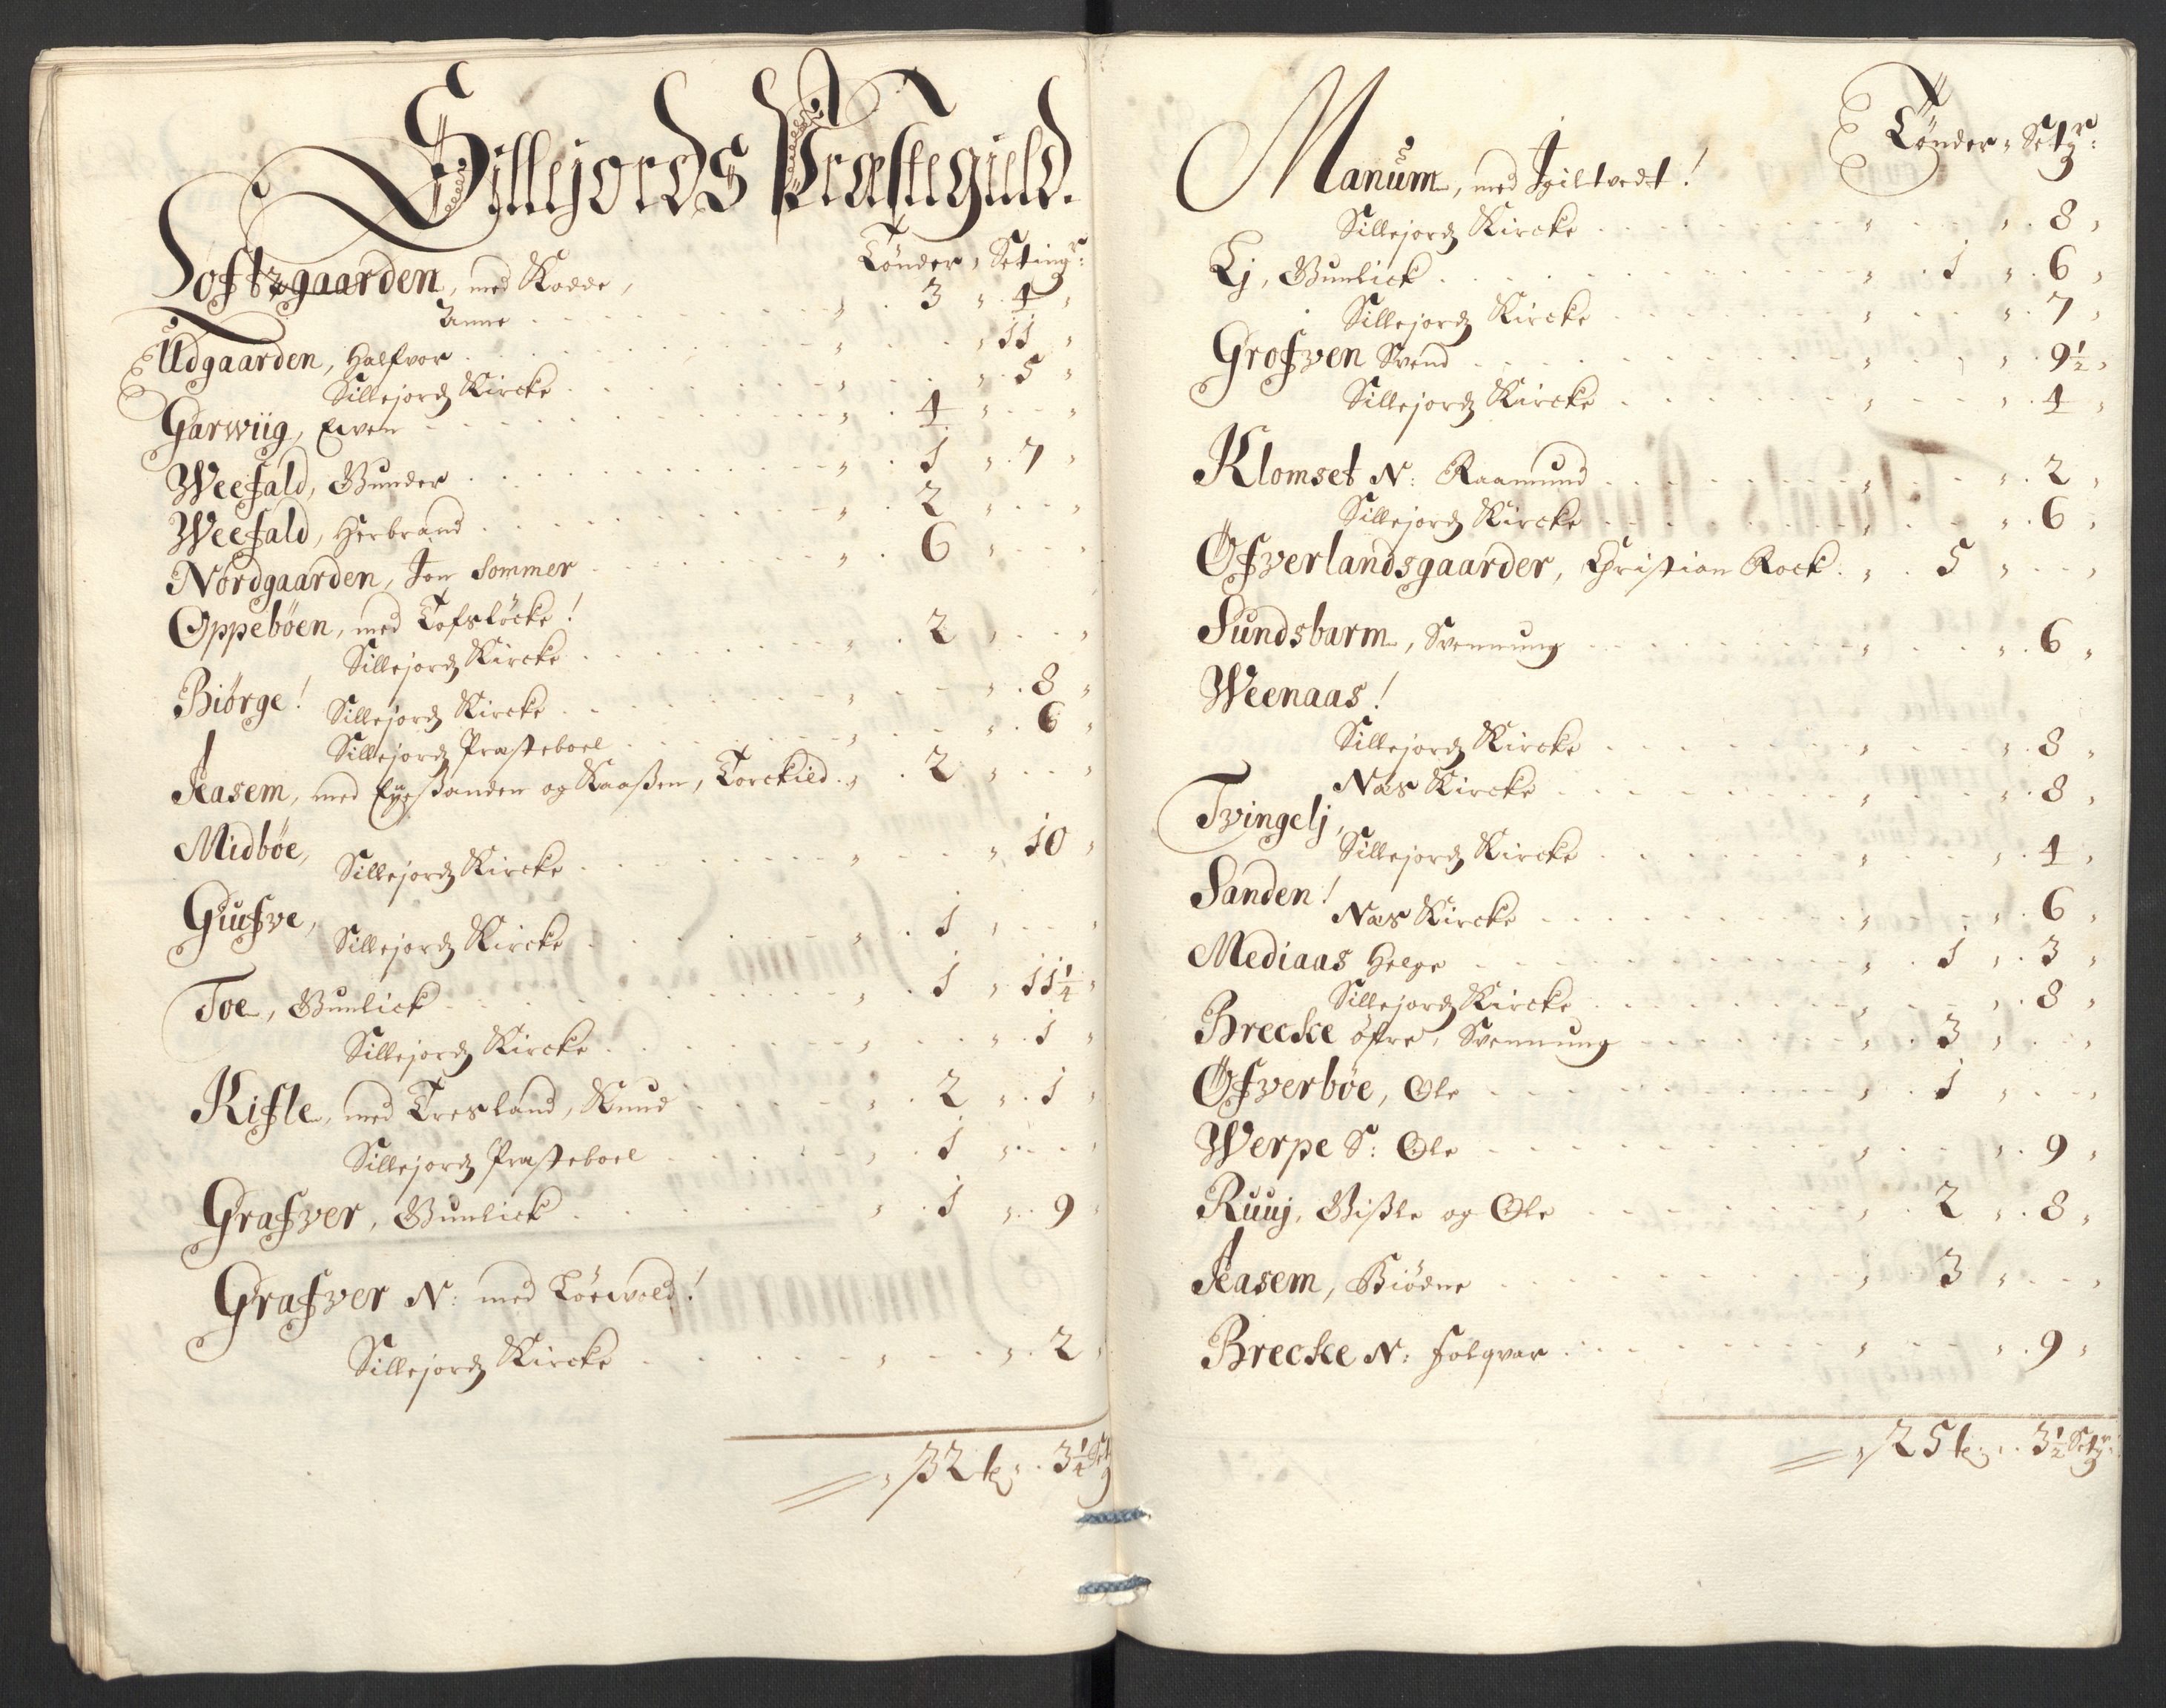 Sillejords Præstegield.
Tønder, Setingr:
Loftzgaarden, med Kodde,
Anne 3 4
Udgaarden, Halfvor 11
Sillejordz Kircke 5
Garwiig, Even 4
Weefald, Gunder 1 7
Weefald, Herbrand 2
Nordgaarden, Jon Sommer 6
Oppebøen, med Tofsløcke!
Sillejordz Kircke 2
Biørge! Sillejordz Kircke 8
Sillejordz Præsteboel 6
Aasem, med og Kaaßen, Torckild 2
Midbøe, Sillejordz Kircke 10
Giufve, Sillejordz Kircke 1
Toe, Gunlick 1 11¼
Sillejordz Kircke 1
Kifle, med Tresland, Knud 2 1
Sillejordz Præsteboel 1
Grafver, Gunlick 1 9
Grafver N: med
Sillejordz Kircke 2
32 tr 3¼ Set
Tønder, Setgr:
Manum, med
Sillejordz Kircke 8
Lj, Gunlick 1 6
Sillejordz Kircke 7
Grofven Svend 9½
Sillejordz Kircke 4
Klomset N: Raamund 2
Sillejordz Kircke 6
Øfverlandsgaarder, Christian Rock 5
Sundsbarm, Svennung 6
Weenaas!
Sillejordz Kircke 8
Næs Kircke 8
Tvingelj,
Sillejordz Kircke 4
Sanden! Næs Kircke 6
Mediaas Helge 1 3
Sillejordz Kircke 8
Brecke øfre, Svennung 3
Øfverbøe, Ole 1
Werpe S: Ole 9
Ruuj, Gißle og Ole 2 8
Aasem, Kiødne 3
Brecke N: Folqvar 9
25 tr 3½ Setgr: